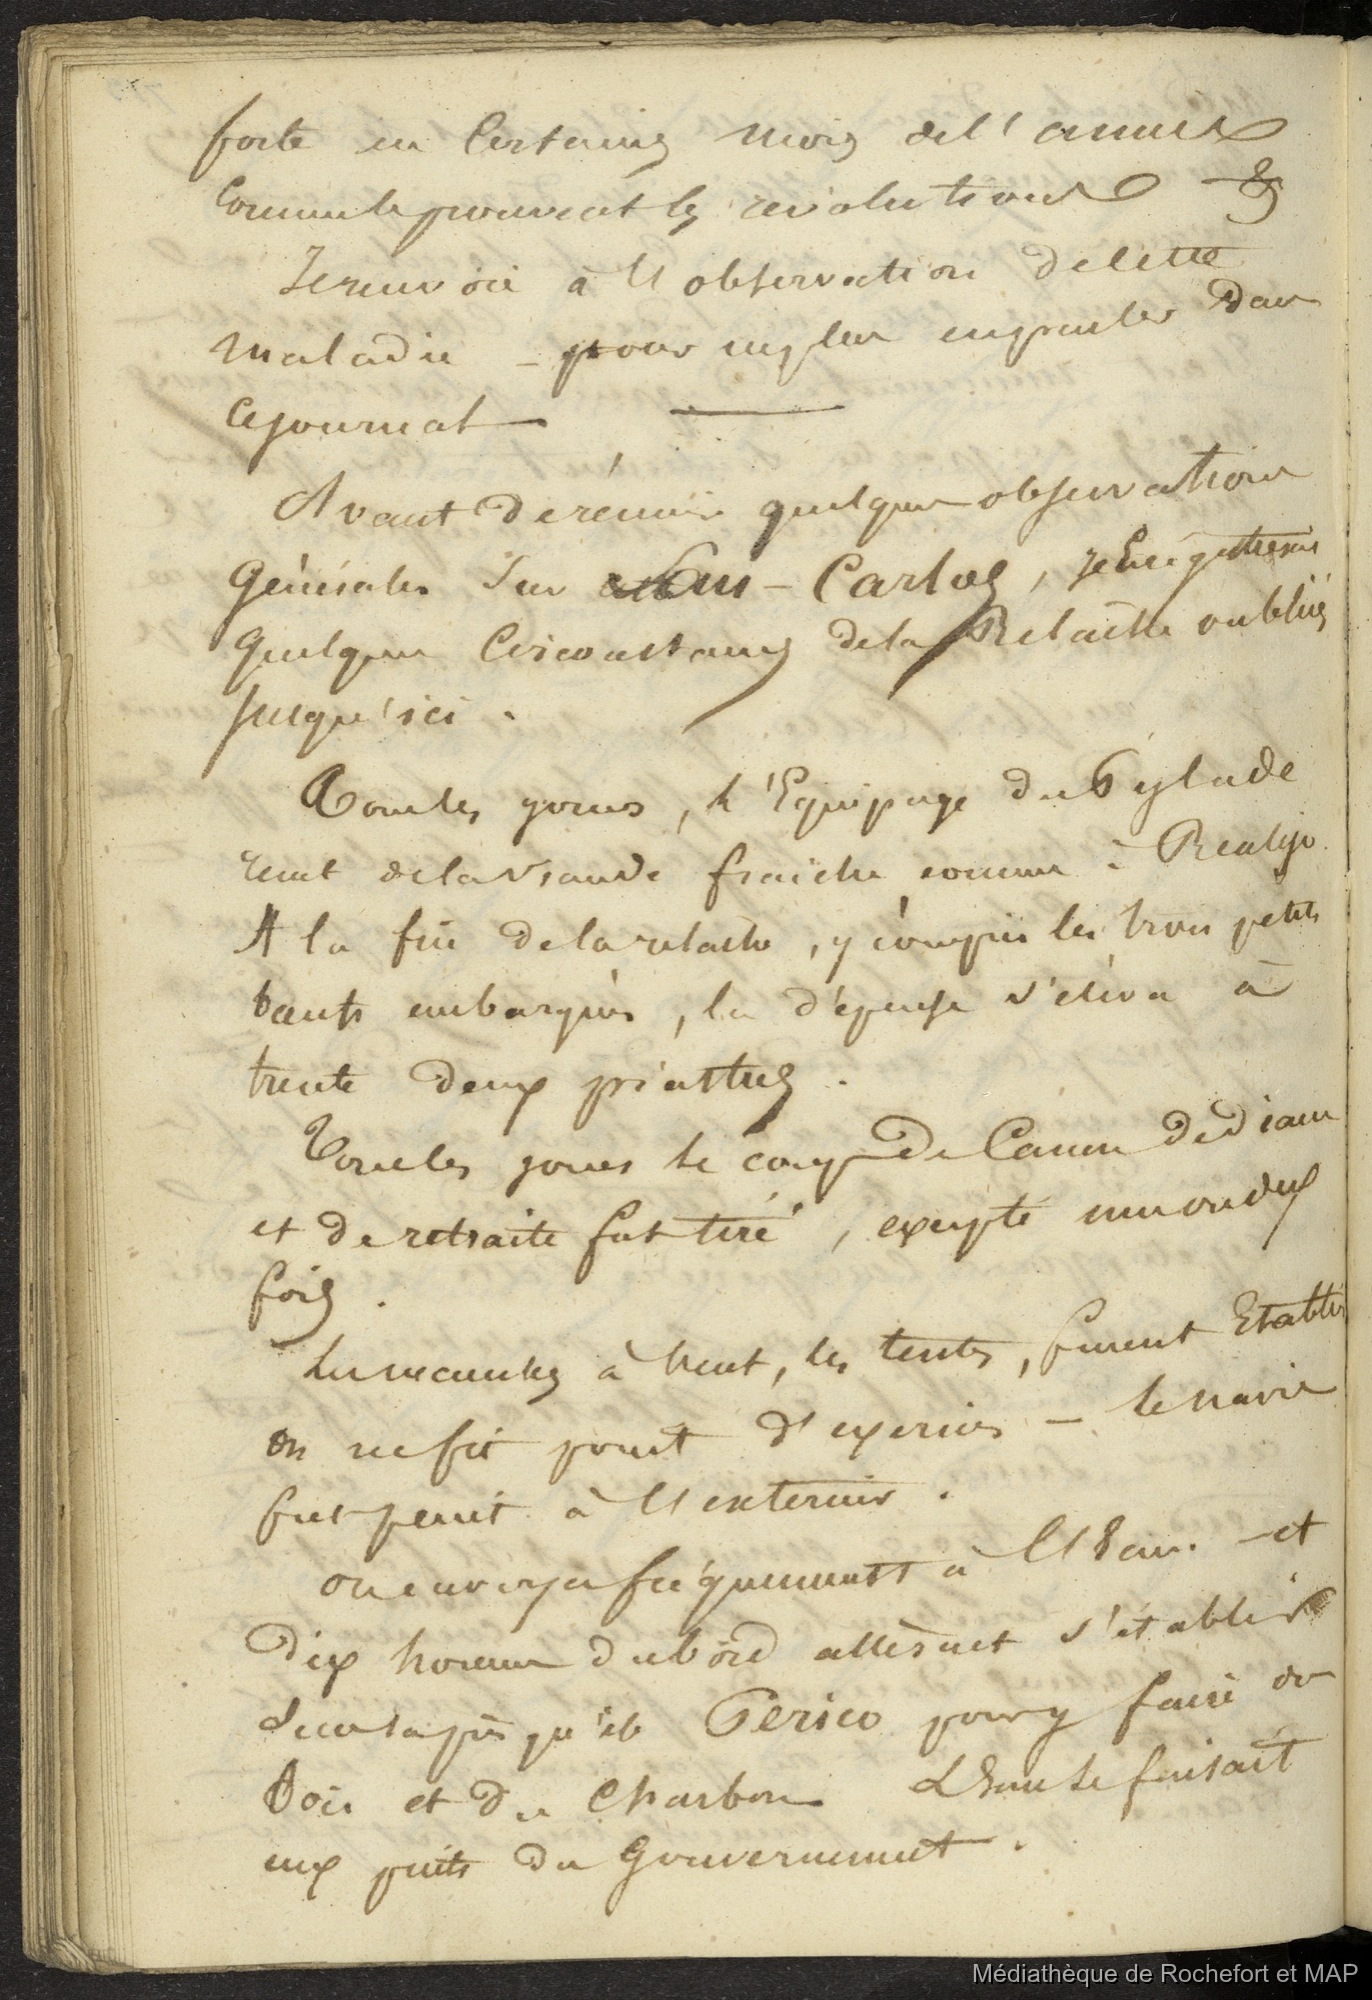 forte en certains mois de l'année
comme le prouvent les révolutions &
Je renvoie à l'observation de cette
maladie - pour ne plus en parler dans
ce journal —
Avant de réunir quelques observations
Générales sur San-Carlos, j'enregistrerai
quelques circonstances de la Relâche oubliées
jusqu'ici.
Tous les jours, l'Equipage du Pylade
reçut de la viande fraîche comme à Realejo.
A la fin de la relâche, y compris les trois petits
bœufs embarqués, la dépense s'éleva à
trente deux piastres.
Tous les jours le coup de Canon de diane
et de retraite fut tiré, excepté une ou deux
fois.
Les manches à vent, les tentes, furent Etablies
on ne fit point d'exercices - le navire
fut peint à l'exterieur.
on envoya fréquemment à l'Eau. - et
dix hommes du bord allèrent s'établir
qu'à Perico pour y faire du
bois et du Charbon L'Eau se faisait
aux puits du Gouvernement.
Médiathèque de Rochefort et MAP